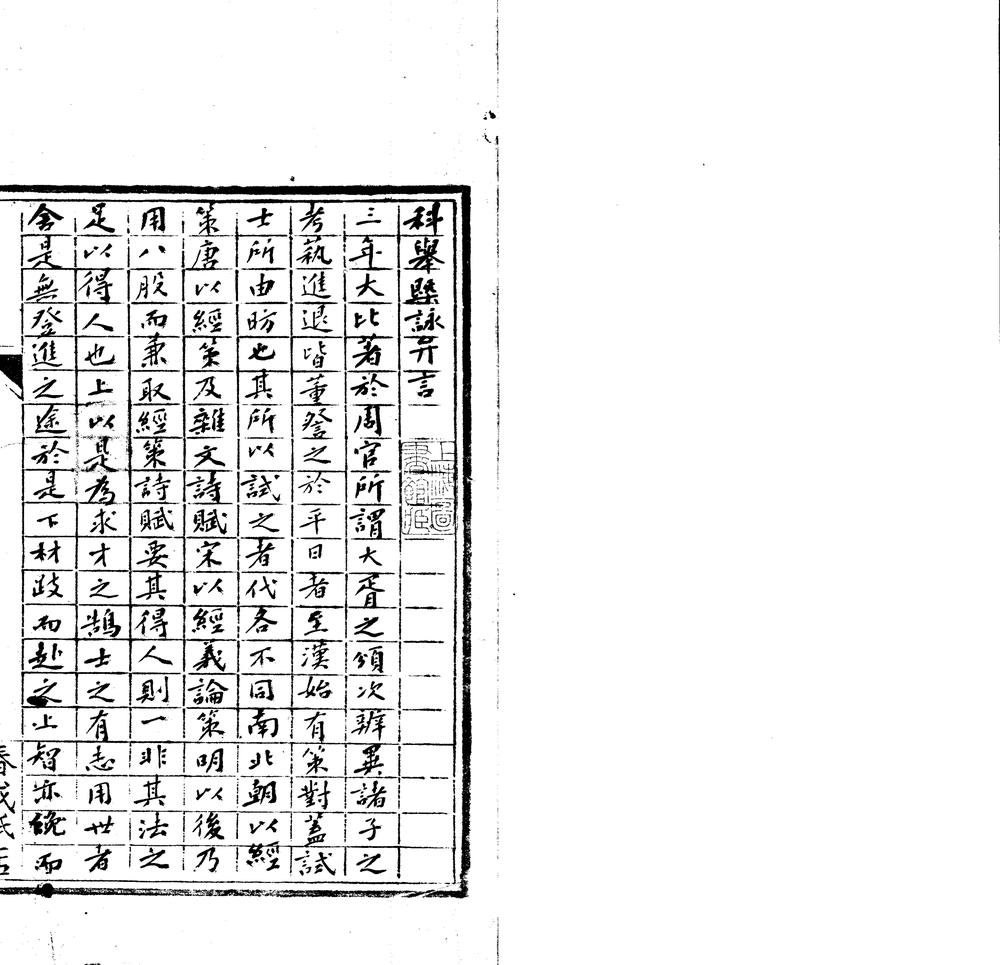 科舉槩詠弁言
三年大比著於周官所謂大胥之頒次辨異諸子之
考蓺進退皆董詧之於平日者至漢始有策對蓋試
士所由昉也其所以試之者代各不同南北朝以經
策唐以經策及雜文詩賦宋以經義論策明以後乃
用八股而兼取經策詩賦要其得人則一非其法之
足以得人也上以是為求才之鵠士之有志用世者
舍是無登進之途於是下材跂而赴之上智亦俛而
上海圖書館藏